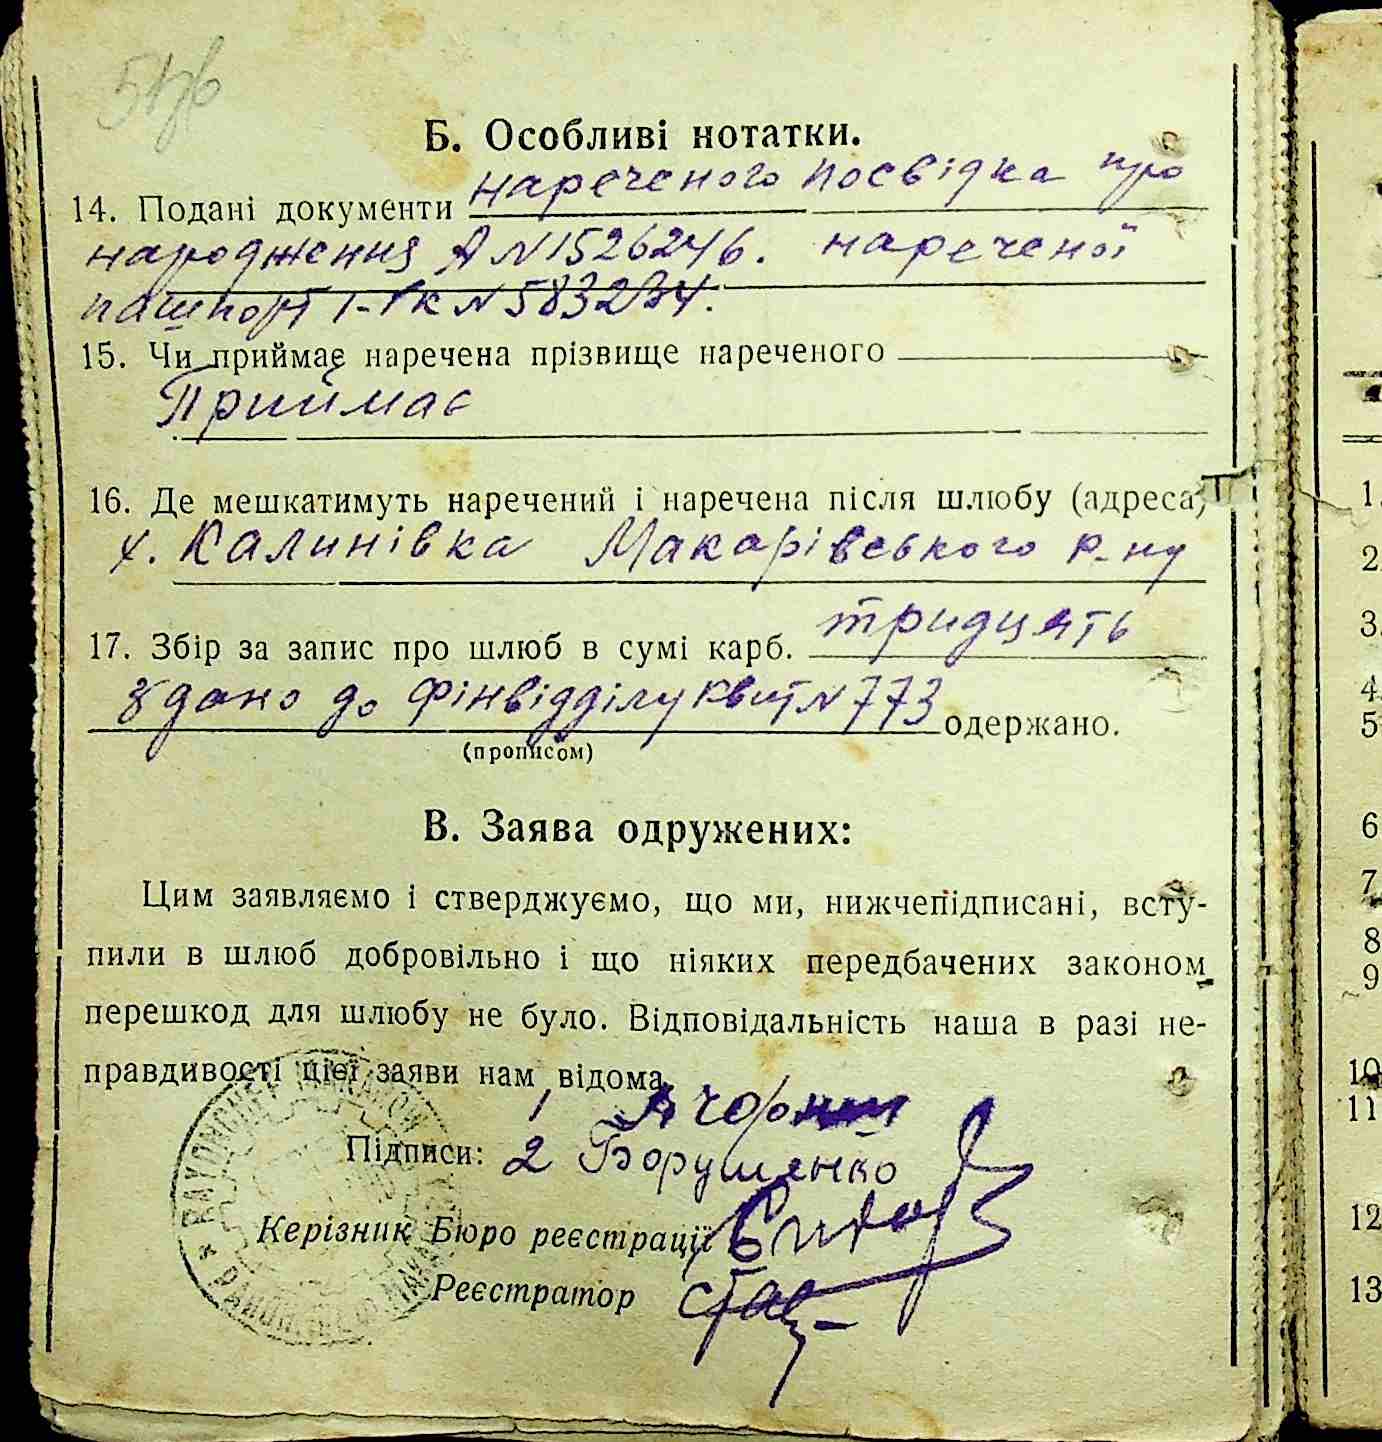 Б. Особливі нотатки.
14. Подані документи нареченого посвідка про
народження А N 1526246. нареченої
пашпорт І-Рк N 583234.
15. Чи приймає наречена прізвище нареченого
Приймає
16. Де мешкатимуть наречений і наречена після шлюбу (адреса)
х. Калинівка Макарівського р-ну
17. Збір за запис про шлюб в сумі карб. тридцять
здано до фінвідділу квит N 773 одержано.
(прописом)
В. Заява одружених:
Цим заявляємо і стверджуємо, що ми, нижчепідписані, всту-
пили в шлюб добровільно і що ніяких передбачених законом
перешкод для шлюбу не було. Відповідальність наша в разі не-
правдивості цієї заяви нам відома.
1
Підписи: 2 Борушенко
Керізник Бюро реєстрації
Реєстратор
1.
2
3.
4.
5
6
7
8
9
10
11
12
13